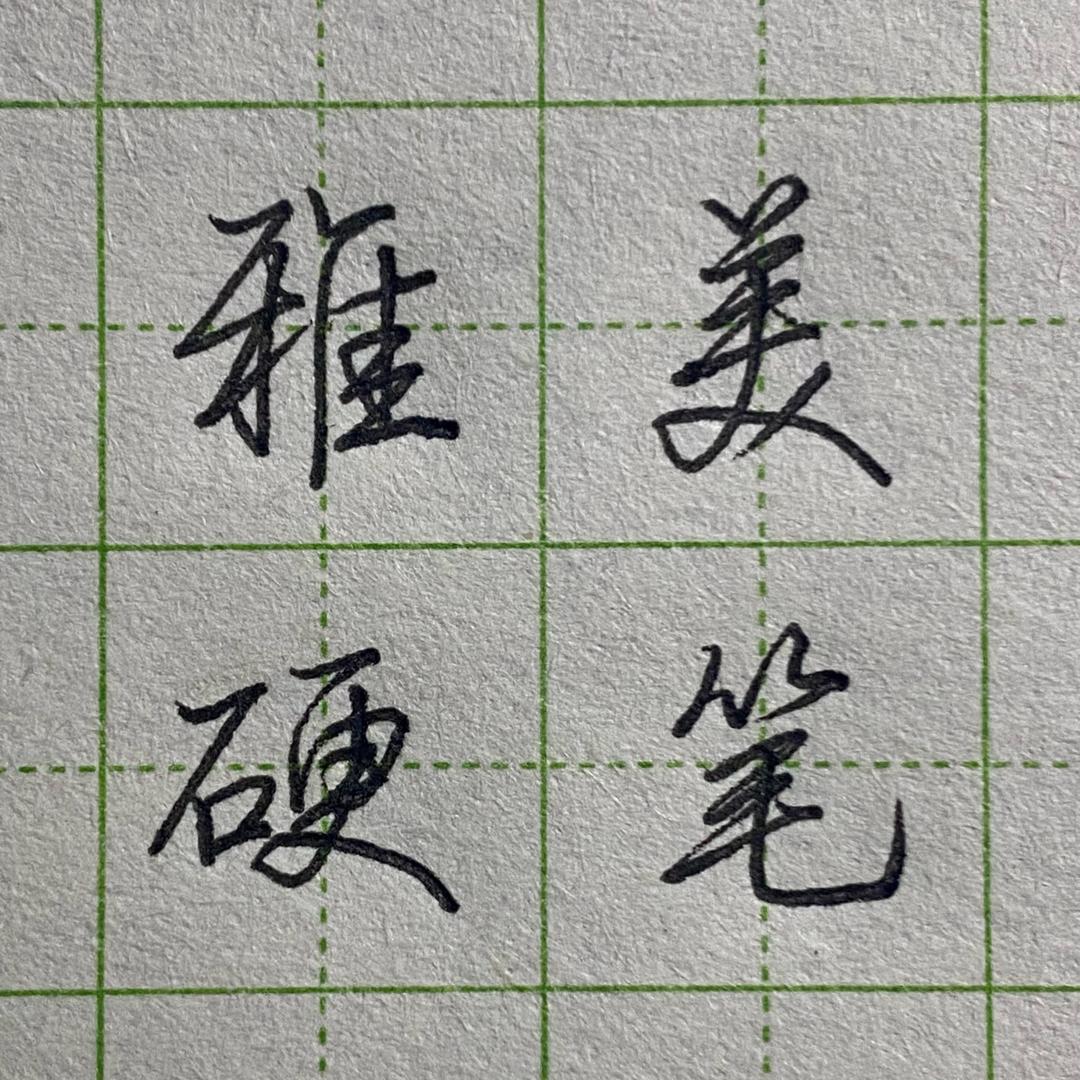 雅美
硬笔